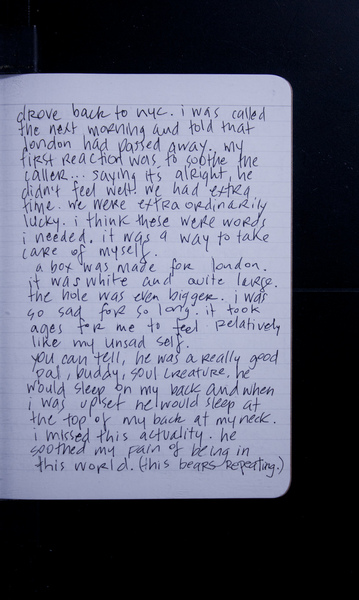 drove back to nyc. i was called
the next morning and told that
london had passed away. my
first reaction was to soothe the
caller... saying its alright, he
didn't feel well. we had extra
time. we were extraordinarily
lucky. i think these were words
i needed. it was a way to take
care of myself.
a box was made for london.
it was white and quite large.
the hole was even bigger. i was
so sad for so long. it took
ages for me to feel relatively
like my unsad self.
you can tell, he was a really good
pal, buddy, soul creature. he
would sleep on my back and when
i was upset he would sleep at
the top of my back at my neck.
i missed this actuality. he
soothed my pain of being in
this world. (this bears repeating.)